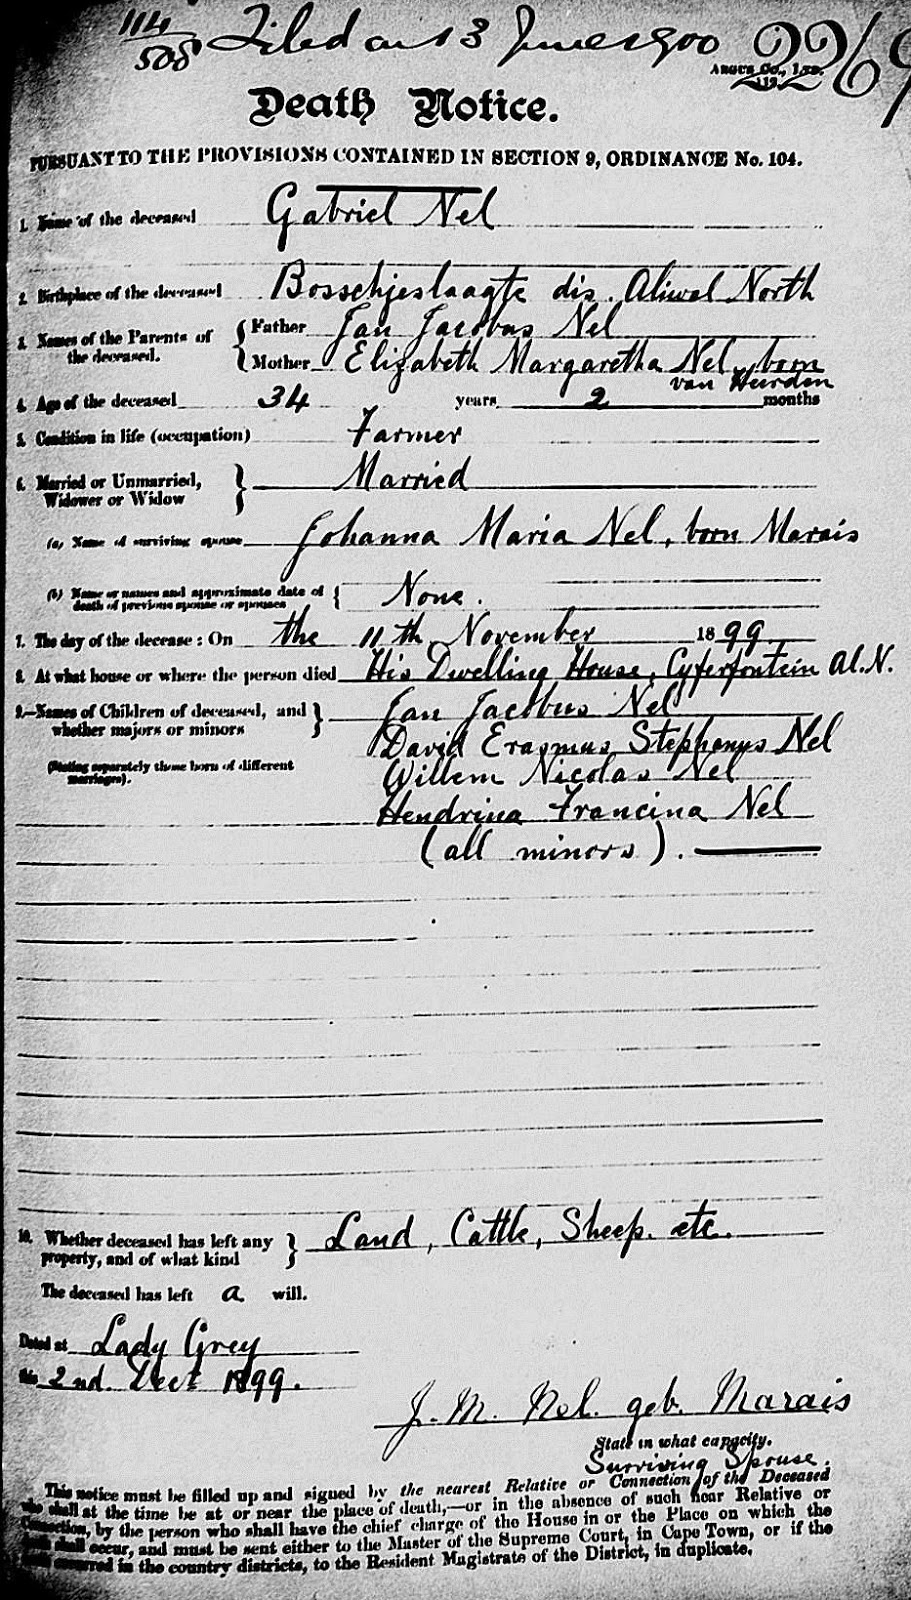 114
508 Filed on 13 June 1900 2269
ARGUS Co., LTD.
Death Notice.
PURSUANT TO THE PROVISIONS CONTAINED IN SECTION 9, ORDINANCE No. 104.
1. Name of the deceased Gabriel Nel
2. Birthplace of the deceased Bosschjeslaagte dis. Aliwal North
3. Names of the Parents of the deceased. { Father Jan Jacobus Nel
{ Mother Elizabeth Margaretha Nel, born
van Heerden
4. Age of the deceased 34 years 2 months
5. Condition in life (occupation) Farmer
6. Married or Unmarried, Widower or Widow } Married
(a) Name of surviving spouse Johanna Maria Nel, born Marais
(b) Name or names and approximate date of death of previous spouse or spouses { None.
7. The day of the decease: On the 11th November 1899
8. At what house or where the person died His Dwelling House, Cyferfontein Al. N.
9.—Names of Children of deceased, and whether majors or minors } Jan Jacobus Nel
David Erasmus Stephanus Nel
(Stating separately those born of different marriages). Willem Nicolas Nel
Hendrina Francina Nel
(all minors).
10. Whether deceased has left any property, and of what kind } Land, Cattle, Sheep. etc.
The deceased has left a will.
Dated at Lady Grey
this 2nd. Dect 1899.
J. M. Nel. geb. Marais
State in what capacity.
Surviving Spouse.
This notice must be filled up and signed by the nearest Relative or Connection of the Deceased
who shall at the time be at or near the place of death,—or in the absence of such near Relative or
Connection, by the person who shall have the chief charge of the House in or the Place on which the
death shall occur, and must be sent either to the Master of the Supreme Court, in Cape Town, or if the
death occurred in the country districts, to the Resident Magistrate of the District, in duplicate.